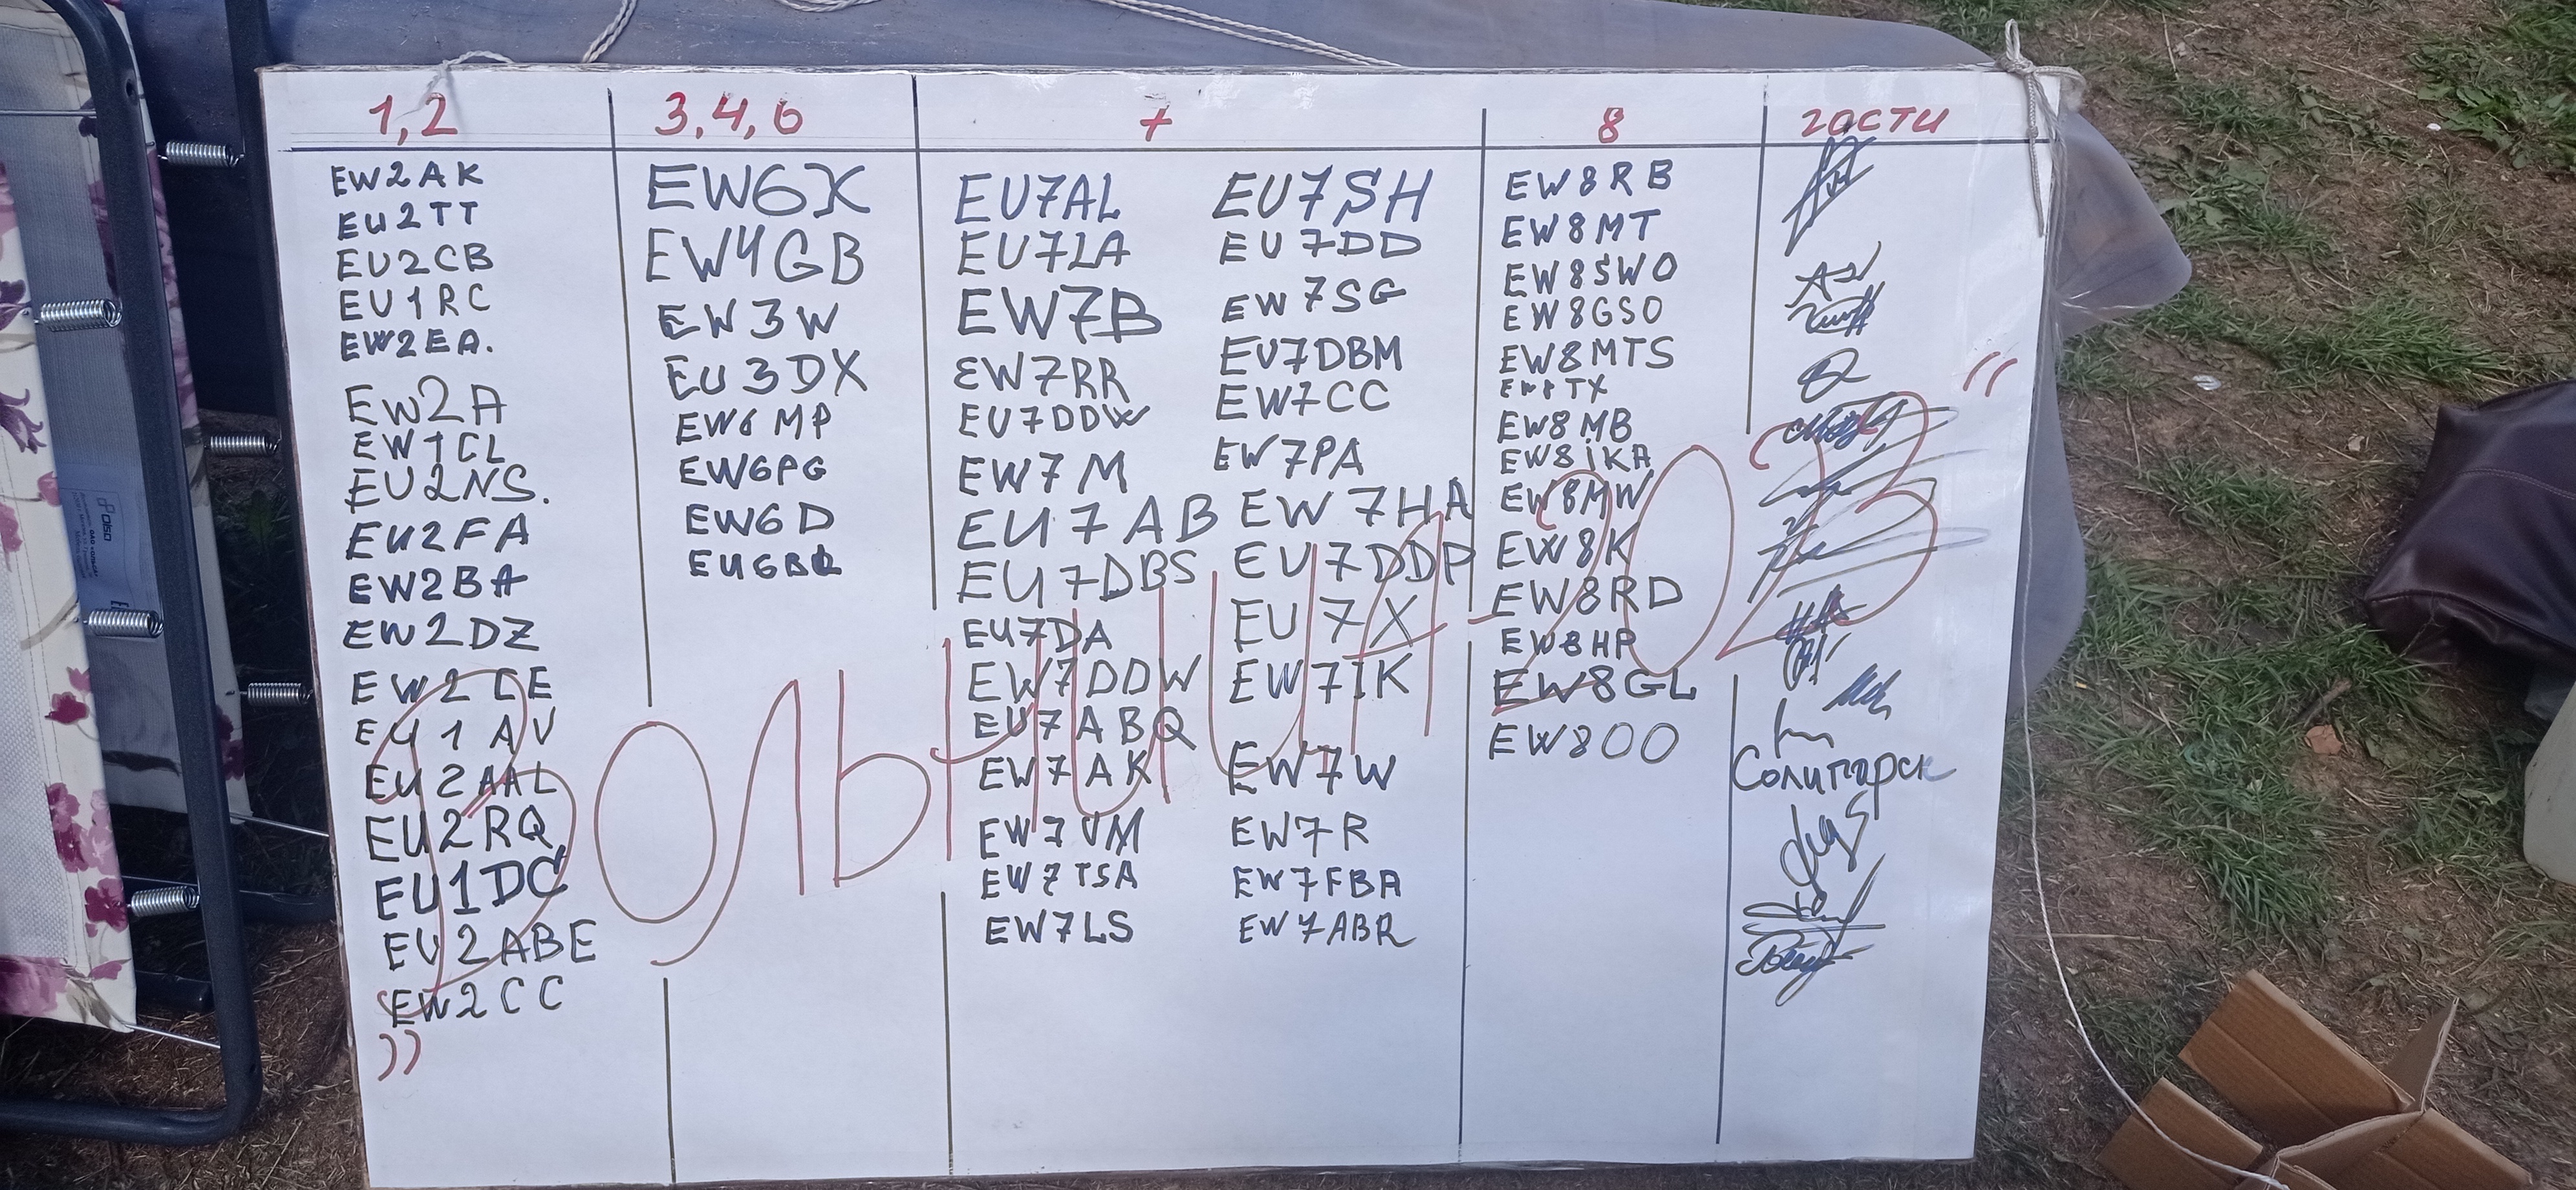 1,2
EW2AK
EU2TT
EU2CB
EU1RC
EW2EA.
EW2A
EW1CL
EU2NS.
EU2FA
EW2BA
EW2DZ
EW2CE
EU1AV
EU2AAL
EU2RQ
EU1DC
EU2ABE
EW2CC
3,4,6
EW6X
EW4GB
EW3W
EU3DX
EW6MP
EW6PG
EW6D
EU6BQ
7
EU7AL
EU7LA
EW7B
EW7RR
EU7DDW
EW7M
EU7AB
EU7DBS
EU7DA
EW7DDW
EU7ABQ
EW7AK
EW7VM
EW7TSA
EW7LS
EU7SH
EU7DD
EW7SG
EU7DBM
EW7CC
EW7PA
EW7HA
EU7DDP
EU7X
EW7IK
EW7W
EW7R
EW7FBA
EW7ABR
8
EW8RB
EW8MT
EW8SWO
EW8GSO
EW8MTS
EW8TX
EW8MB
EW8iKA
EW8MW
EW8K
EW8RD
EW8HP
EW8GL
EW8OO
гости
Солигорск